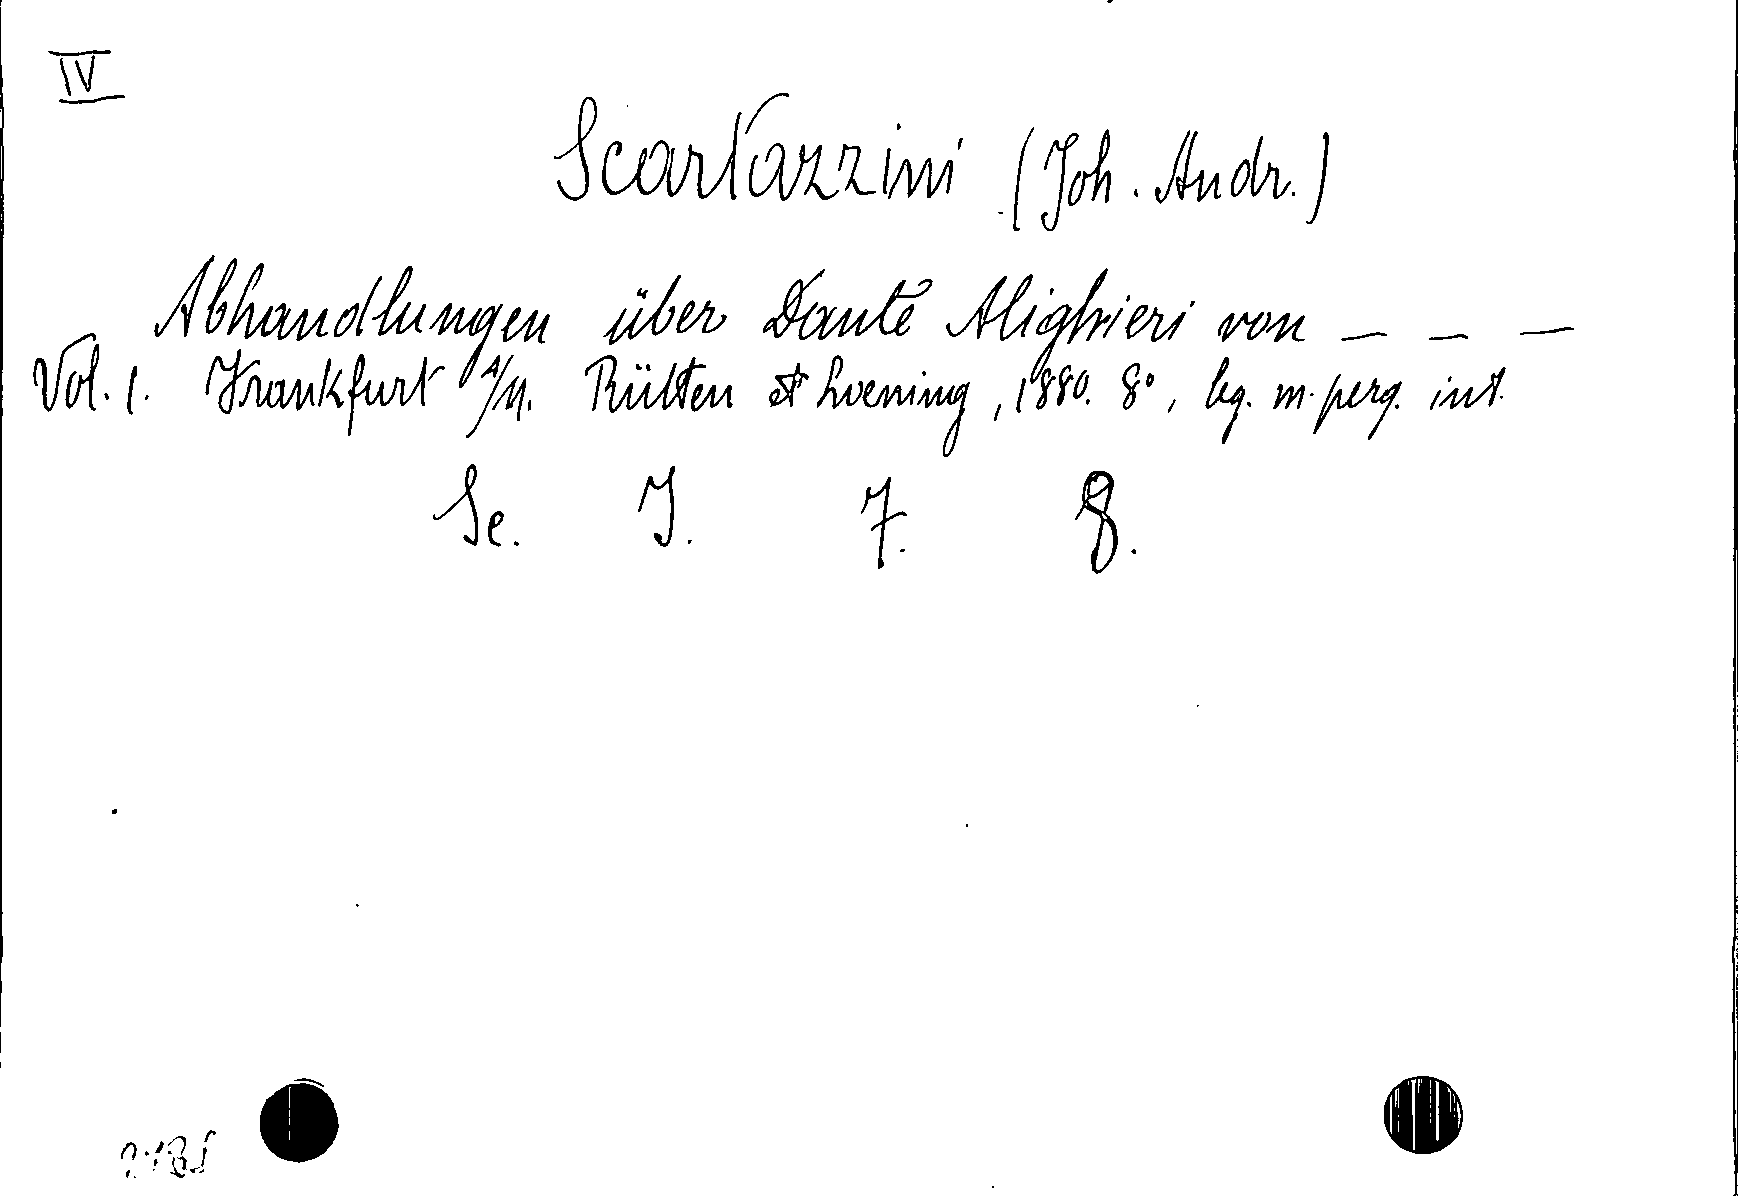 IV
Scartazzini (Joh. Andr.)
Abhandlungen über Dante Alighieri von _ _ _
Vol. 1. Frankfurt a/M. Rütten & Loening, 1880. 8°, lg. m. perg. int.
Se. I. 7. 8.